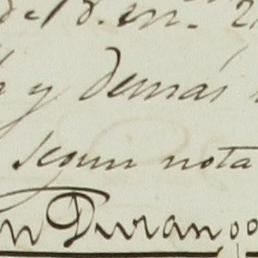 de 18. en.
y demás
segun nota
n Durango